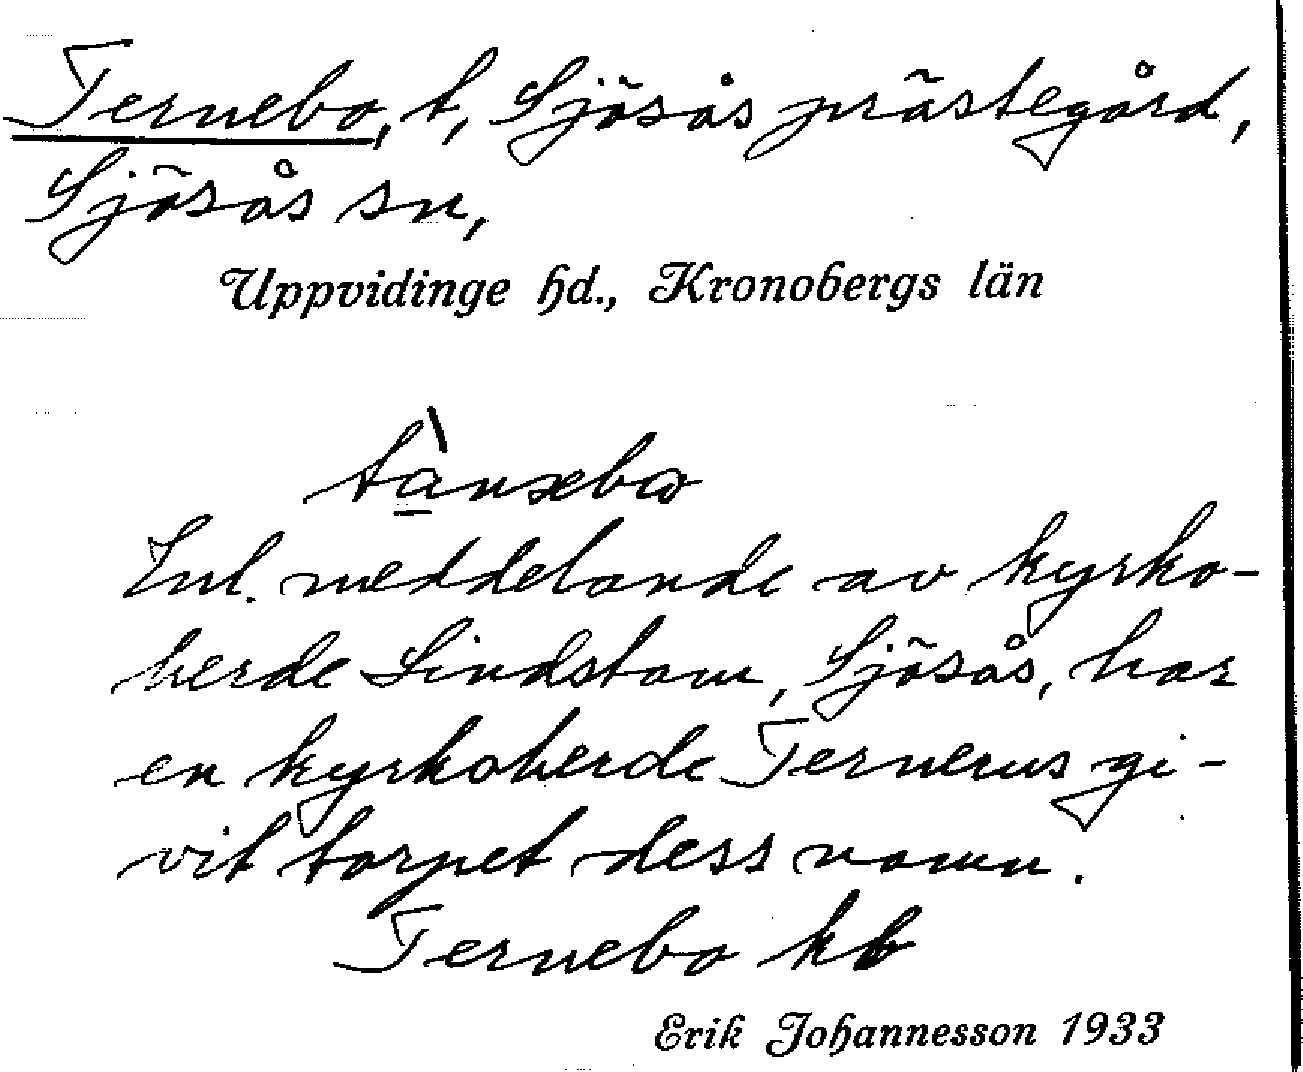 Ternebo, t, Sjösås prästegård,
Sjösås sn,
Uppvidinge hd., Kronobergs län
Enl. meddelande av kyrko-
herde Lindstam, Sjösås, har
en kyrkoherde Ternerus gi-
vit torpet dess namn.
Ternebo kb
Erik Johannesson 1933